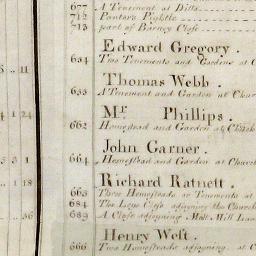 677 A Tenement at Ditto
712 Ponters Pightle
713 part of Barney Close
Edward Gregory.
654 Two Tenements and Gardens at C
Thomas Webb.
655 A Tenement and Garden at Chur
Mr. Phillips.
4 1 24
662 Homestead and Garden at Church
John Garner.
5 3 1
664 Homestead and Garden at Church
Richard Ratnett.
1 18
663 Three Homesteads or Tenements at
684 The Leys Close adjoyning the Church
689 A Close adjoyning Malt Mill Lane
36
Henry West.
666 Two Homesteads adjoyning at C